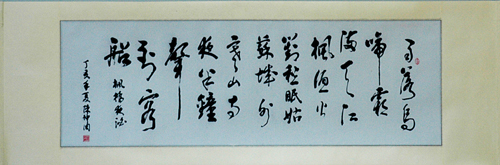 月落烏
啼霜
滿天江
楓漁火
對愁眠姑
蘇城外
寒山寺
夜半鐘
聲
到客
船
楓橋夜泊
丁亥年夏陳仲